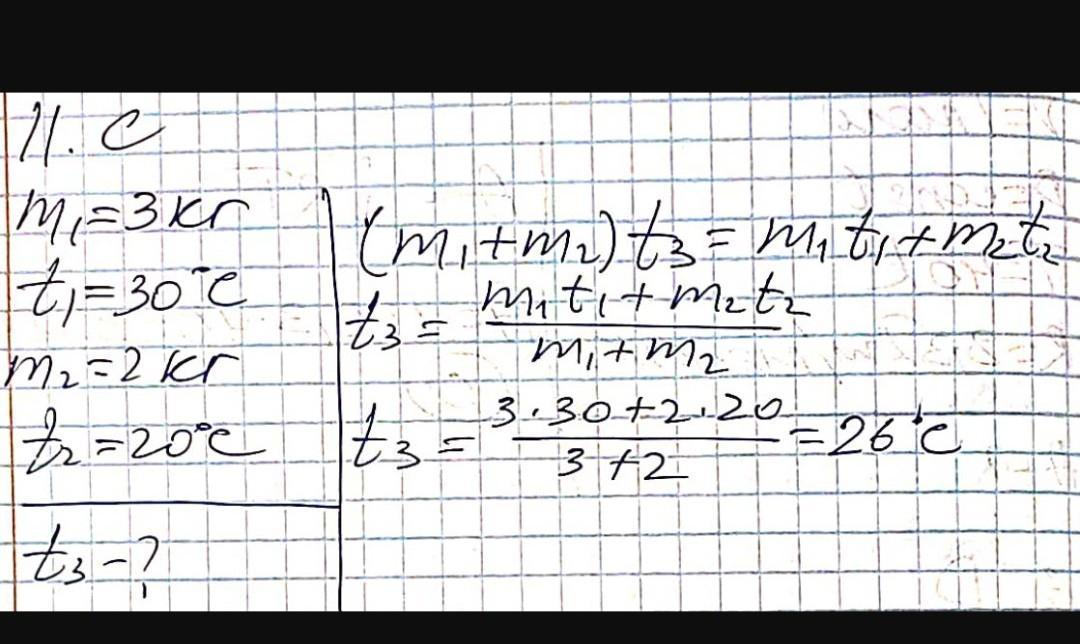 11. C
m₁=3 кг
t₁=30°C
m₂=2 кг
t₂=20°C
t₃-?
(m₁+m₂)t₃=m₁t₁+m₂t₂
t₃= (m₁t₁+m₂t₂)/(m₁+m₂)
t₃= (3·30+2·20)/(3+2) =26°C